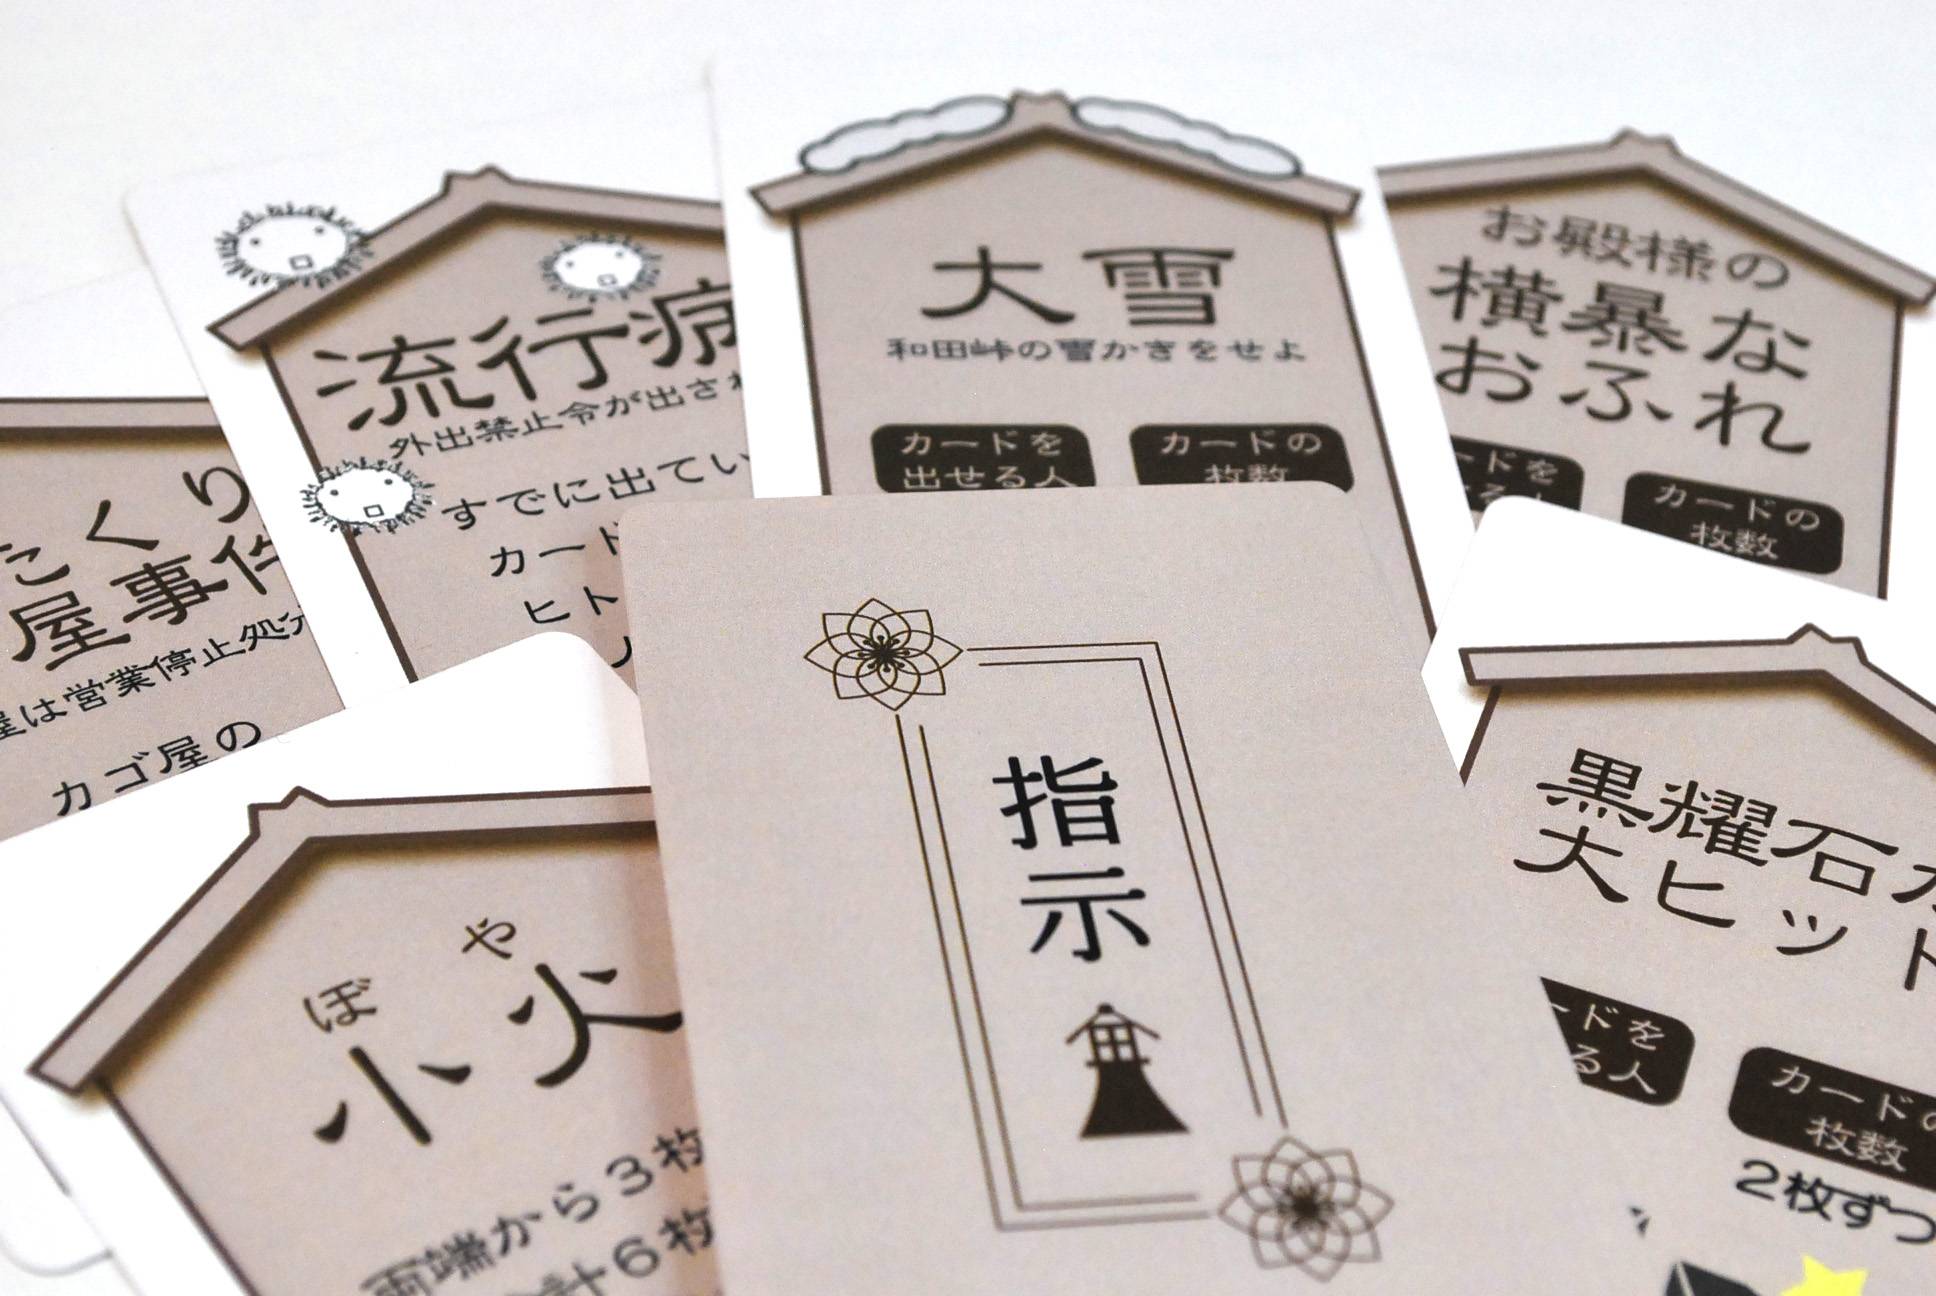 流行病
外出禁止令が出され
すでに出てい
カード
ヒト
大雪
和田峠の雪かきをせよ
カードを
出せる人
カードの
枚数
お殿様の
横暴な
おふれ
ードを
る人
カードの
枚数
たくり
屋事件
屋は営業停止処分
カゴ屋の
ぼや
小火
両端から3枚
合計6枚
指示
黒耀石が
大ヒット
ードを
る人
カードの
枚数
2枚ずつ